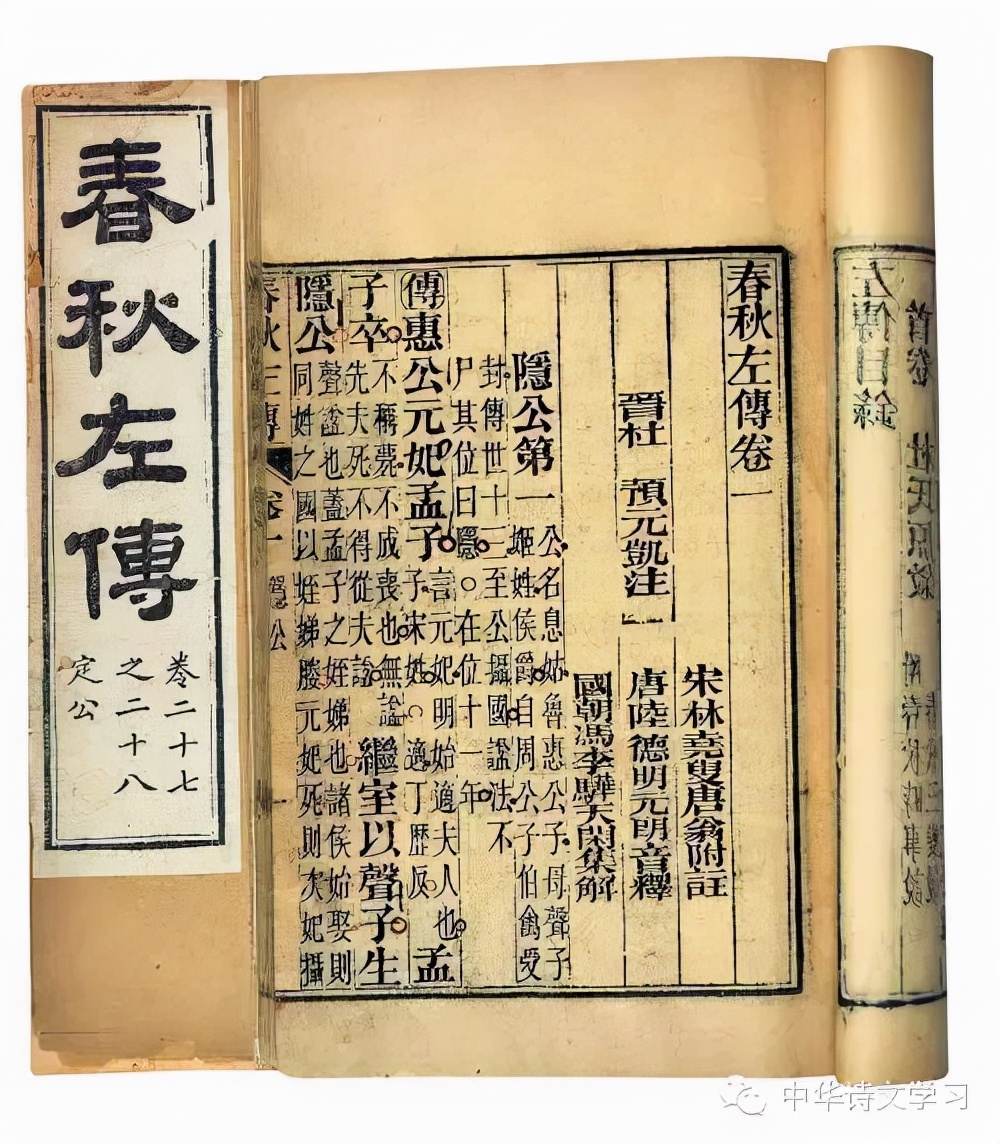 春秋左傳
卷二十七
之二十八
定公
春秋左傳卷一
宋林堯叟唐翁附註
晉杜 預元凱注
唐陸德明元朗音釋
國朝馮李驊天閑集解
隱公第一
公名息姑魯惠公子母聲子
姬姓侯爵自周公子伯禽受
封傳世十三至公攝國諡法不
尸其位曰隱○在位十一年
傳惠公元妃孟子
言元妃明始適夫人也
子宋姓○適丁歷反
孟
子卒
不稱薨不成喪也無諡
先夫死不得從夫諡
繼室以聲子生
隱公
聲諡也蓋孟子之姪娣也諸侯始娶則
同姓之國以姪娣媵元妃死則次妃攝
春秋左傳 卷一 隱公
左傳目錄
首卷
中华诗文学习